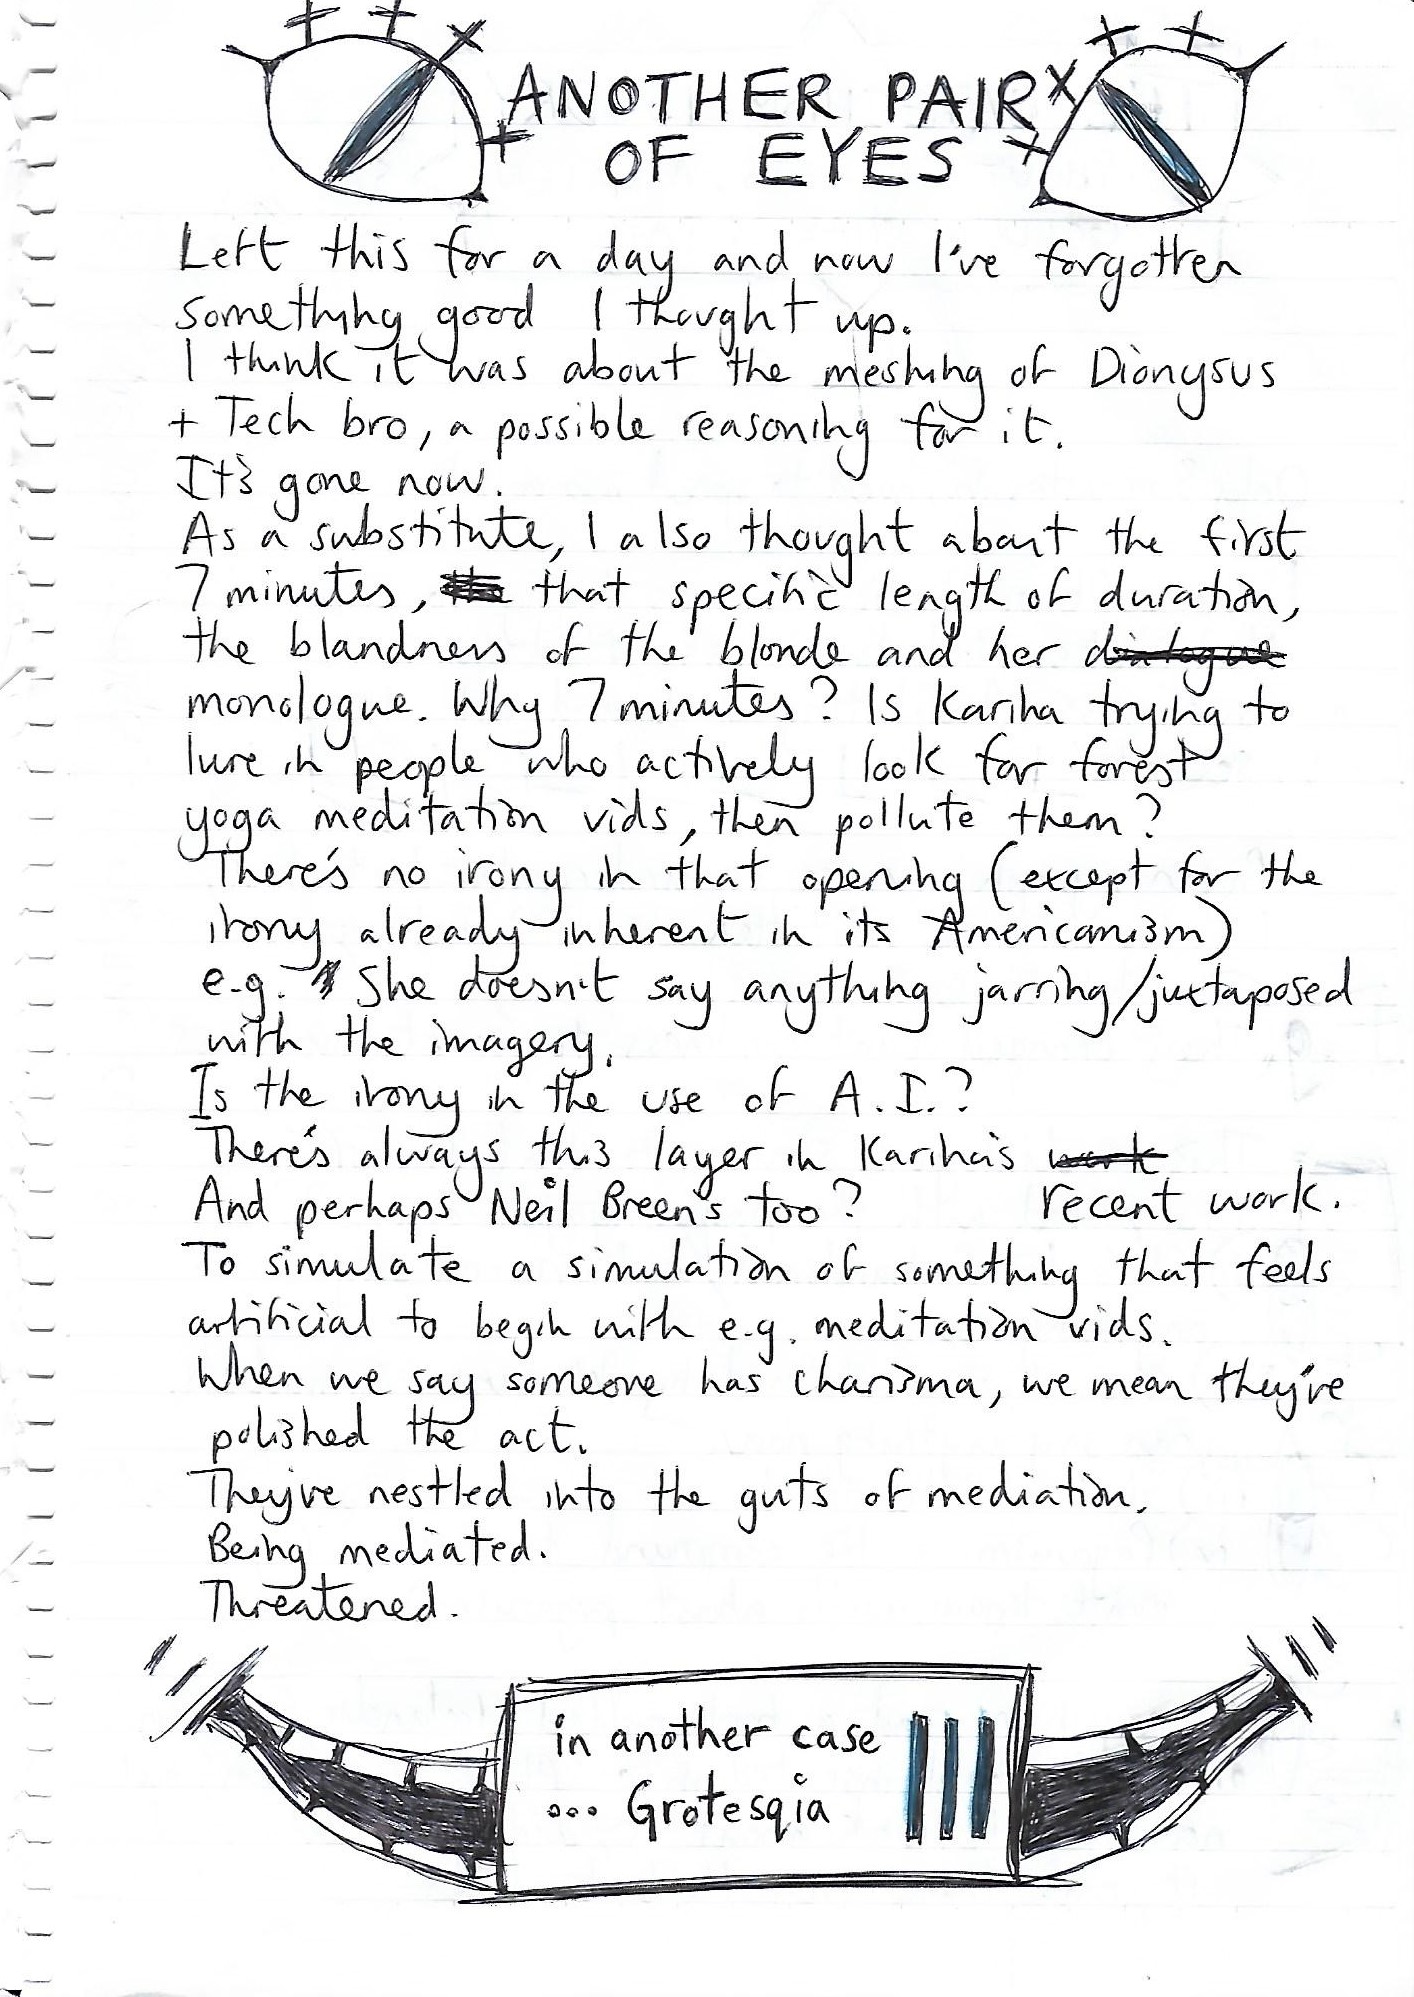 ANOTHER PAIR
OF EYES
Left this for a day and now I've forgotten
something good I thought up.
I think it was about the meshing of Dionysus
+ Tech bro, a possible reasoning for it.
It's gone now.
As a substitute, I also thought about the first
7 minutes, that specific length of duration,
the blandness of the blonde and her dialogue
monologue. Why 7 minutes? Is Kariha trying to
lure in people who actively look for forest
yoga meditation vids, then pollute them?
There's no irony in that opening (except for the
irony already inherent in its Americanism)
e.g. She doesn't say anything jarring/juxtaposed
with the imagery.
Is the irony in the use of A.I.?
There's always this layer in Kariha's work
recent work.
And perhaps Neil Breen's too?
To simulate a simulation of something that feels
artificial to begin with e.g. meditation vids.
When we say someone has charisma, we mean they've
polished the act.
They've nestled into the guts of mediation.
Being mediated.
Threatened.
in another case
... Grotesqia